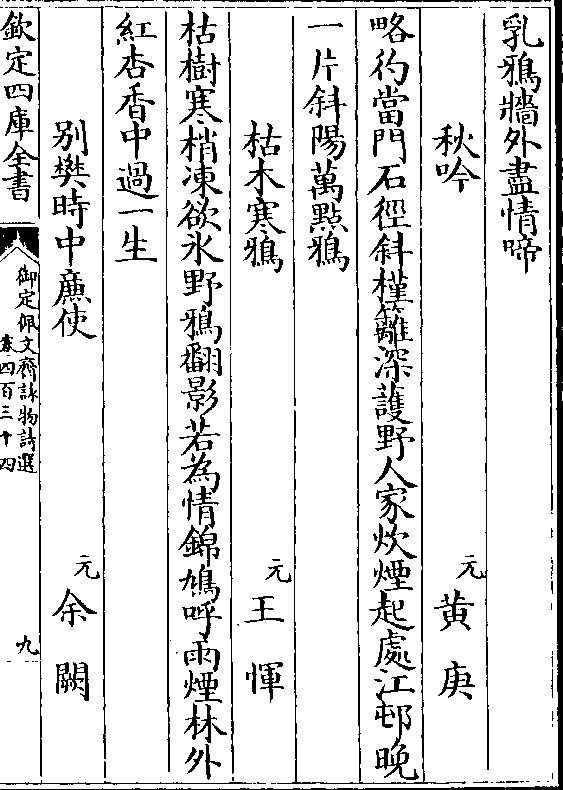 乳鴉牆外盡情啼
秋吟 元 黄庚
略彴當門石徑斜槿籬深護野人家炊煙起處江邨晩
一片斜陽萬點鴉
枯木寒鴉 元 王惲
枯樹寒梢凍欲氷野鴉翻影若為情錦鳩呼雨煙林外
紅杏香中過一生
别樊時中廉使 元 余闕
欽定四庫全書
御定佩文齋詠物詩選
卷四百三十四
九